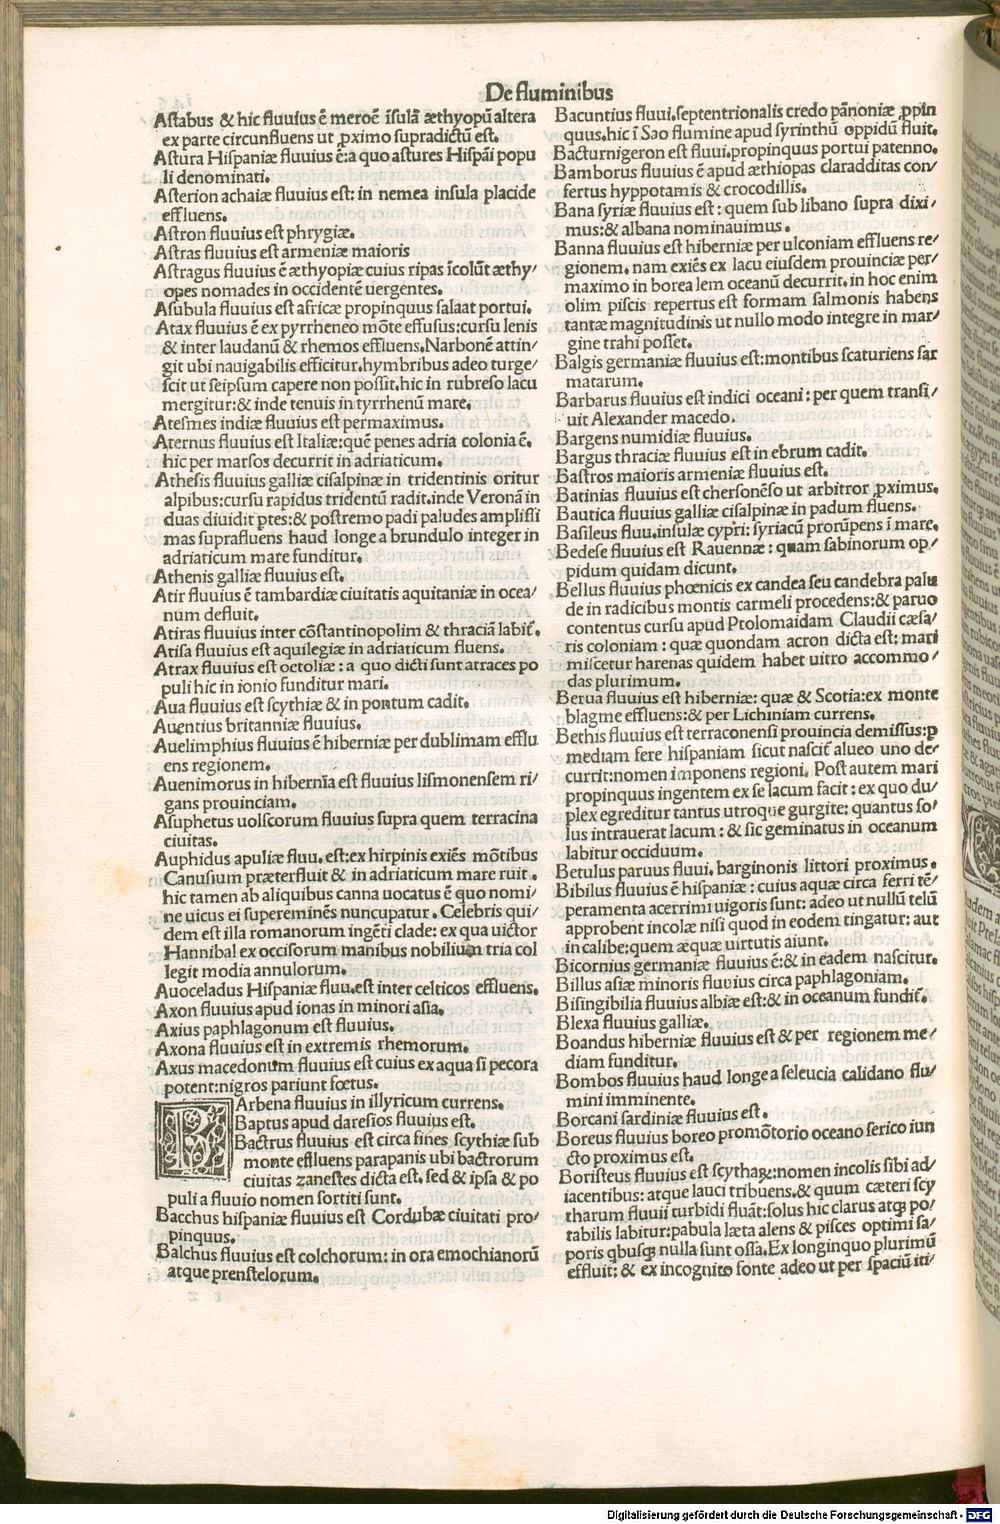 De fluminibus
Astabus & hic fluuius ē meroē ĩsulā æthyopũ altera
ex parte circunfluens ut ꝓximo supradictũ est.
Astura Hispaniæ fluuius ē:a quo astures Hispāi popu
li denominati.
Asterion achaiæ fluuius est: in nemea insula placide
effluens.
Astron fluuius est phrygiæ.
Astras fluuius est armeniæ maioris
Astragus fluuius ē æthyopiæ cuius ripas ĩcolũt æthy/
opes nomades in occidentē uergentes.
Asubula fluuius est africæ propinquus salaat portui.
Atax fluuius ē ex pyrrheneo mōte effusus:cursu lenis
& inter laudanũ & rhemos effluens.Narbonē attin/
git ubi nauigabilis efficitur.hymbribus adeo turge/
scit ut seipsum capere non possit.hic in rubreso lacu
mergitur:& inde tenuis in tyrrhenũ mare.
Atesmes indiæ fluuius est permaximus.
Aternus fluuius est Italiæ:quē penes adria colonia ē.
hic per marsos decurrit in adriaticum.
Athesis fluuius galliæ cisalpinæ in tridentinis oritur
alpibus:cursu rapidus tridentũ radit.inde Veronā in
duas diuidit ꝑtes:& postremo padi paludes amplissi
mas suprafluens haud longe a brundulo integer in
adriaticum mare funditur.
Athenis galliæ fluuius est.
Atir fluuius ē tambardiæ ciuitatis aquitaniæ in ocea/
num defluit.
Atiras fluuius inter cōstantinopolim & thraciā labit̃.
Atisa fluuius est aquilegiæ in adriaticum fluens.
Atrax fluuius est octoliæ: a quo dicti sunt atraces po
puli hic in ionio funditur mari.
Aua fluuius est scythiæ & in pontum cadit.
Auentius britanniæ fluuius.
Auelimphius fluuius ē hiberniæ per dublimam efflu
ens regionem.
Auenimorus in hibernia est fluuius lismonensem ri/
gans prouinciam.
Asuphetus uolscorum fluuius supra quem terracina
ciuitas.
Auphidus apuliæ fluu.est:ex hirpinis exiēs mōtibus
Canusium præterfluit & in adriaticum mare ruit.
hic tamen ab aliquibus canna uocatus ē quo nomi/
ne uicus ei supereminēs nuncupatur. Celebris qui/
dem est illa romanorum ingēti clade: ex qua uictor
Hannibal ex occisorum manibus nobilium tria col
legit modia annulorum.
Auoceladus Hispaniæ fluu.est inter celticos effluens.
Axon fluuius apud ionas in minori asia.
Axius paphlagonum est fluuius.
Axona fluuius est in extremis rhemorum.
Axus macedonum fluuius est cuius ex aqua si pecora
potent:nigros pariunt fœtus.
BArbena fluuius in illyricum currens.
Baptus apud daresios fluuius est.
Bactrus fluuius est circa fines scythiæ sub
monte effluens parapanis ubi bactrorum
ciuitas zanestes dicta est. sed & ipsa & po
puli a fluuio nomen sortiti sunt.
Bacchus hispaniæ fluuius est Cordubæ ciuitati pro/
pinquus.
Balchus fluuius est colchorum: in ora emochianorũ
atque prenstelorum.
Bacuntius fluui.septentrionalis credo pānoniæ ꝓpin
quus.hic ĩ Sao flumine apud syrinthũ oppidũ fluit.
Bacturnigeron est fluui.propinquus portui patenno.
Bamborus fluuius ē apud æthiopas claradditas con/
fertus hyppotamis & crocodillis.
Bana syriæ fluuius est: quem sub libano supra dixi/
mus:& albana nominauimus.
Banna fluuius est hiberniæ per ulconiam effluens re/
gionem. nam exiēs ex lacu eiusdem prouinciæ per/
maximo in borea lem oceanũ decurrit.in hoc enim
olim piscis repertus est formam salmonis habens
tantæ magnitudinis ut nullo modo integre in mar/
gine trahi posset.
Balgis germaniæ fluuius est:montibus scaturiens sar
matarum.
Barbarus fluuius est indici oceani: per quem transi/
uit Alexander macedo.
Bargens numidiæ fluuius.
Bargus thraciæ fluuius est in ebrum cadit.
Bastros maioris armeniæ fluuius est.
Batinias fluuius est chersonēso ut arbitror ꝓximus.
Bautica fluuius galliæ cisalpinæ in padum fluens.
Basileus fluu.insulæ cypri: syriacũ prorũpens ĩ mare.
Bedese fluuius est Rauennæ: quam sabinorum op/
pidum quidam dicunt.
Bellus fluuius phœnicis ex candea seu candebra palu
de in radicibus montis carmeli procedens:& paruo
contentus cursu apud Ptolomaidam Claudii cæsa/
ris coloniam: quæ quondam acron dicta est: mari
miscetur harenas quidem habet uitro accommo/
das plurimum.
Berua fluuius est hiberniæ: quæ & Scotia:ex monte
blagme effluens:& per Lichiniam currens.
Bethis fluuius est terraconensi prouincia demissus:ꝑ
mediam fere hispaniam sicut nascit̃ alueo uno de/
currit:nomen imponens regioni. Post autem mari
propinquus ingentem ex se lacum facit: ex quo du/
plex egreditur tantus utroque gurgite: quantus so/
lus intrauerat lacum: & sic geminatus in oceanum
labitur occiduum.
Betulus paruus fluui. barginonis littori proximus.
Bibilus fluuius ē hispaniæ: cuius aquæ circa ferri tē/
peramenta acerrimi uigoris sunt: adeo ut nullũ telũ
approbent incolæ nisi quod in eodem tingatur: aut
in calibe:quem æquæ uirtutis aiunt.
Bicornius germaniæ fluuius ē:& in eadem nascitur.
Billus asiæ minoris fluuius circa paphlagoniam.
Bisingibilia fluuius albiæ est:& in oceanum fundit̃.
Blexa fluuius galliæ.
Boandus hiberniæ fluuius est & per regionem me/
diam funditur.
Bombos fluuius haud longe a seleucia calidano flu/
mini imminente.
Borcani sardiniæ fluuius est.
Boreus fluuius boreo promōtorio oceano serico iun
cto proximus est.
Boristeus fluuius est scytharꝫ:nomen incolis sibi ad/
iacentibus: atque lauci tribuens.& quum cæteri scy
tharum fluuii turbidi fluāt:solus hic clarus atqꝫ po/
tabilis labitur:pabula læta alens & pisces optimi sa/
poris qbusqꝫ nulla sunt ossa.Ex longinquo plurimũ
effluit: & ex incognito fonte adeo ut per spaciũ iti/
Digitalisierung gefördert durch die Deutsche Forschungsgemeinschaft - DFG